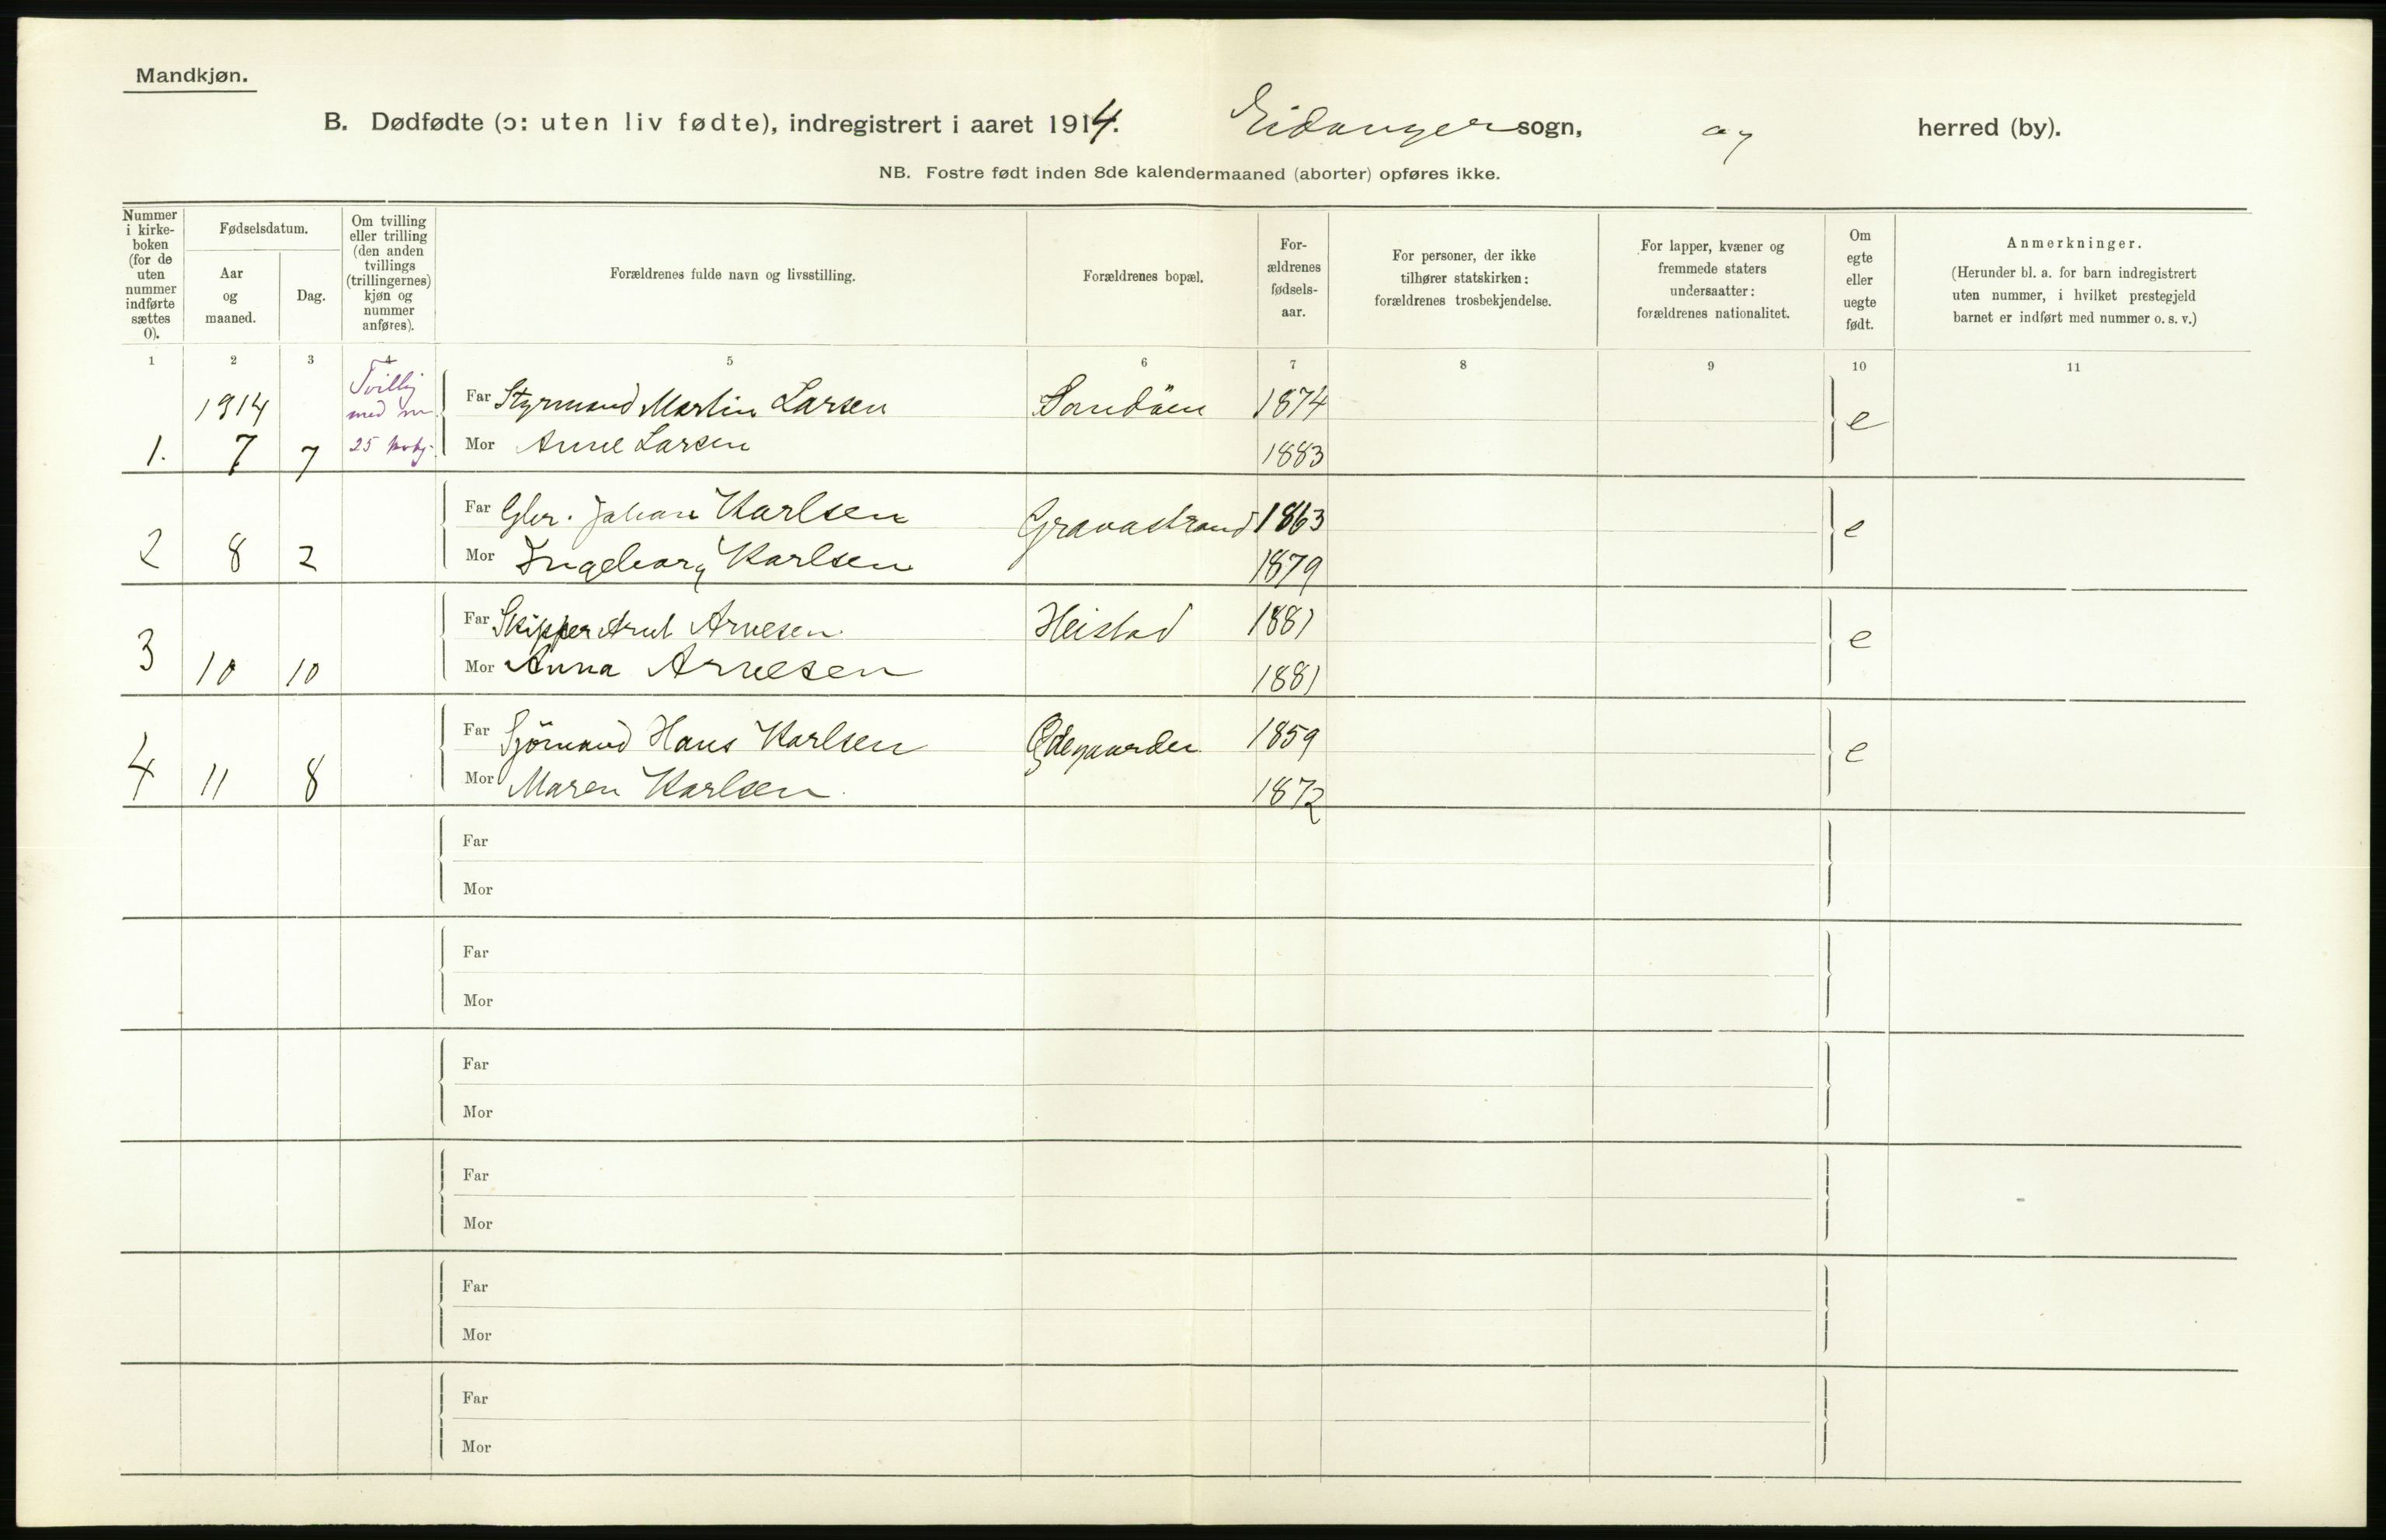 Mandkjøn.
B. Dødfødte (ɔ: uten liv fødte), indregistrert i aaret 1914. Eidanger sogn, og herred (by).
NB. Fostre født inden 8de kalendermaaned (aborter) opføres ikke.
Nummer
i kirke-
boken
(for de
uten
nummer
indførte
sættes
0).
Fødselsdatum.
Aar
og
maaned.
Dag.
Om tvilling
eller trilling
(den anden
tvillings
(trillingernes)
kjøn og
nummer
anføres).
Forældrenes fulde navn og livsstilling.
Forældrenes bopæl.
For-
ældrenes
fødsels-
aar.
For personer, der ikke
tilhører statskirken:
forældrenes trosbekjendelse.
For lapper, kvæner og
fremmede staters
undersaatter:
forældrenes nationalitet.
Om
egte
eller
uegte
født.
Anmerkninger.
(Herunder bl. a. for barn indregistrert
uten nummer, i hvilket prestegjeld
barnet er indført med nummer o. s. v.)
1 2 3 4 5 6 7 8 9 10 11
1914 Tvillig med nr Far Styrmand Martin Larsen Sandöen 1874 e
1. 7 7 25 Mor Anne Larsen 1883
Far Gbr. Johan Karlsen Gravastrand 1863 e
2 8 2 Mor Ingeborg Karlsen 1879
Far Skipper Arnt Arnesen. Heistad 1881 e
3 10 10 Mor Anna Arnesen 1881
Far Sjömand Hans Karlsen Ødegaarden 1859 e
4 11 8 Mor Maren Karlsen. 1872
Far
Mor
Far
Mor
Far
Mor
Far
Mor
Far
Mor
Far
Mor